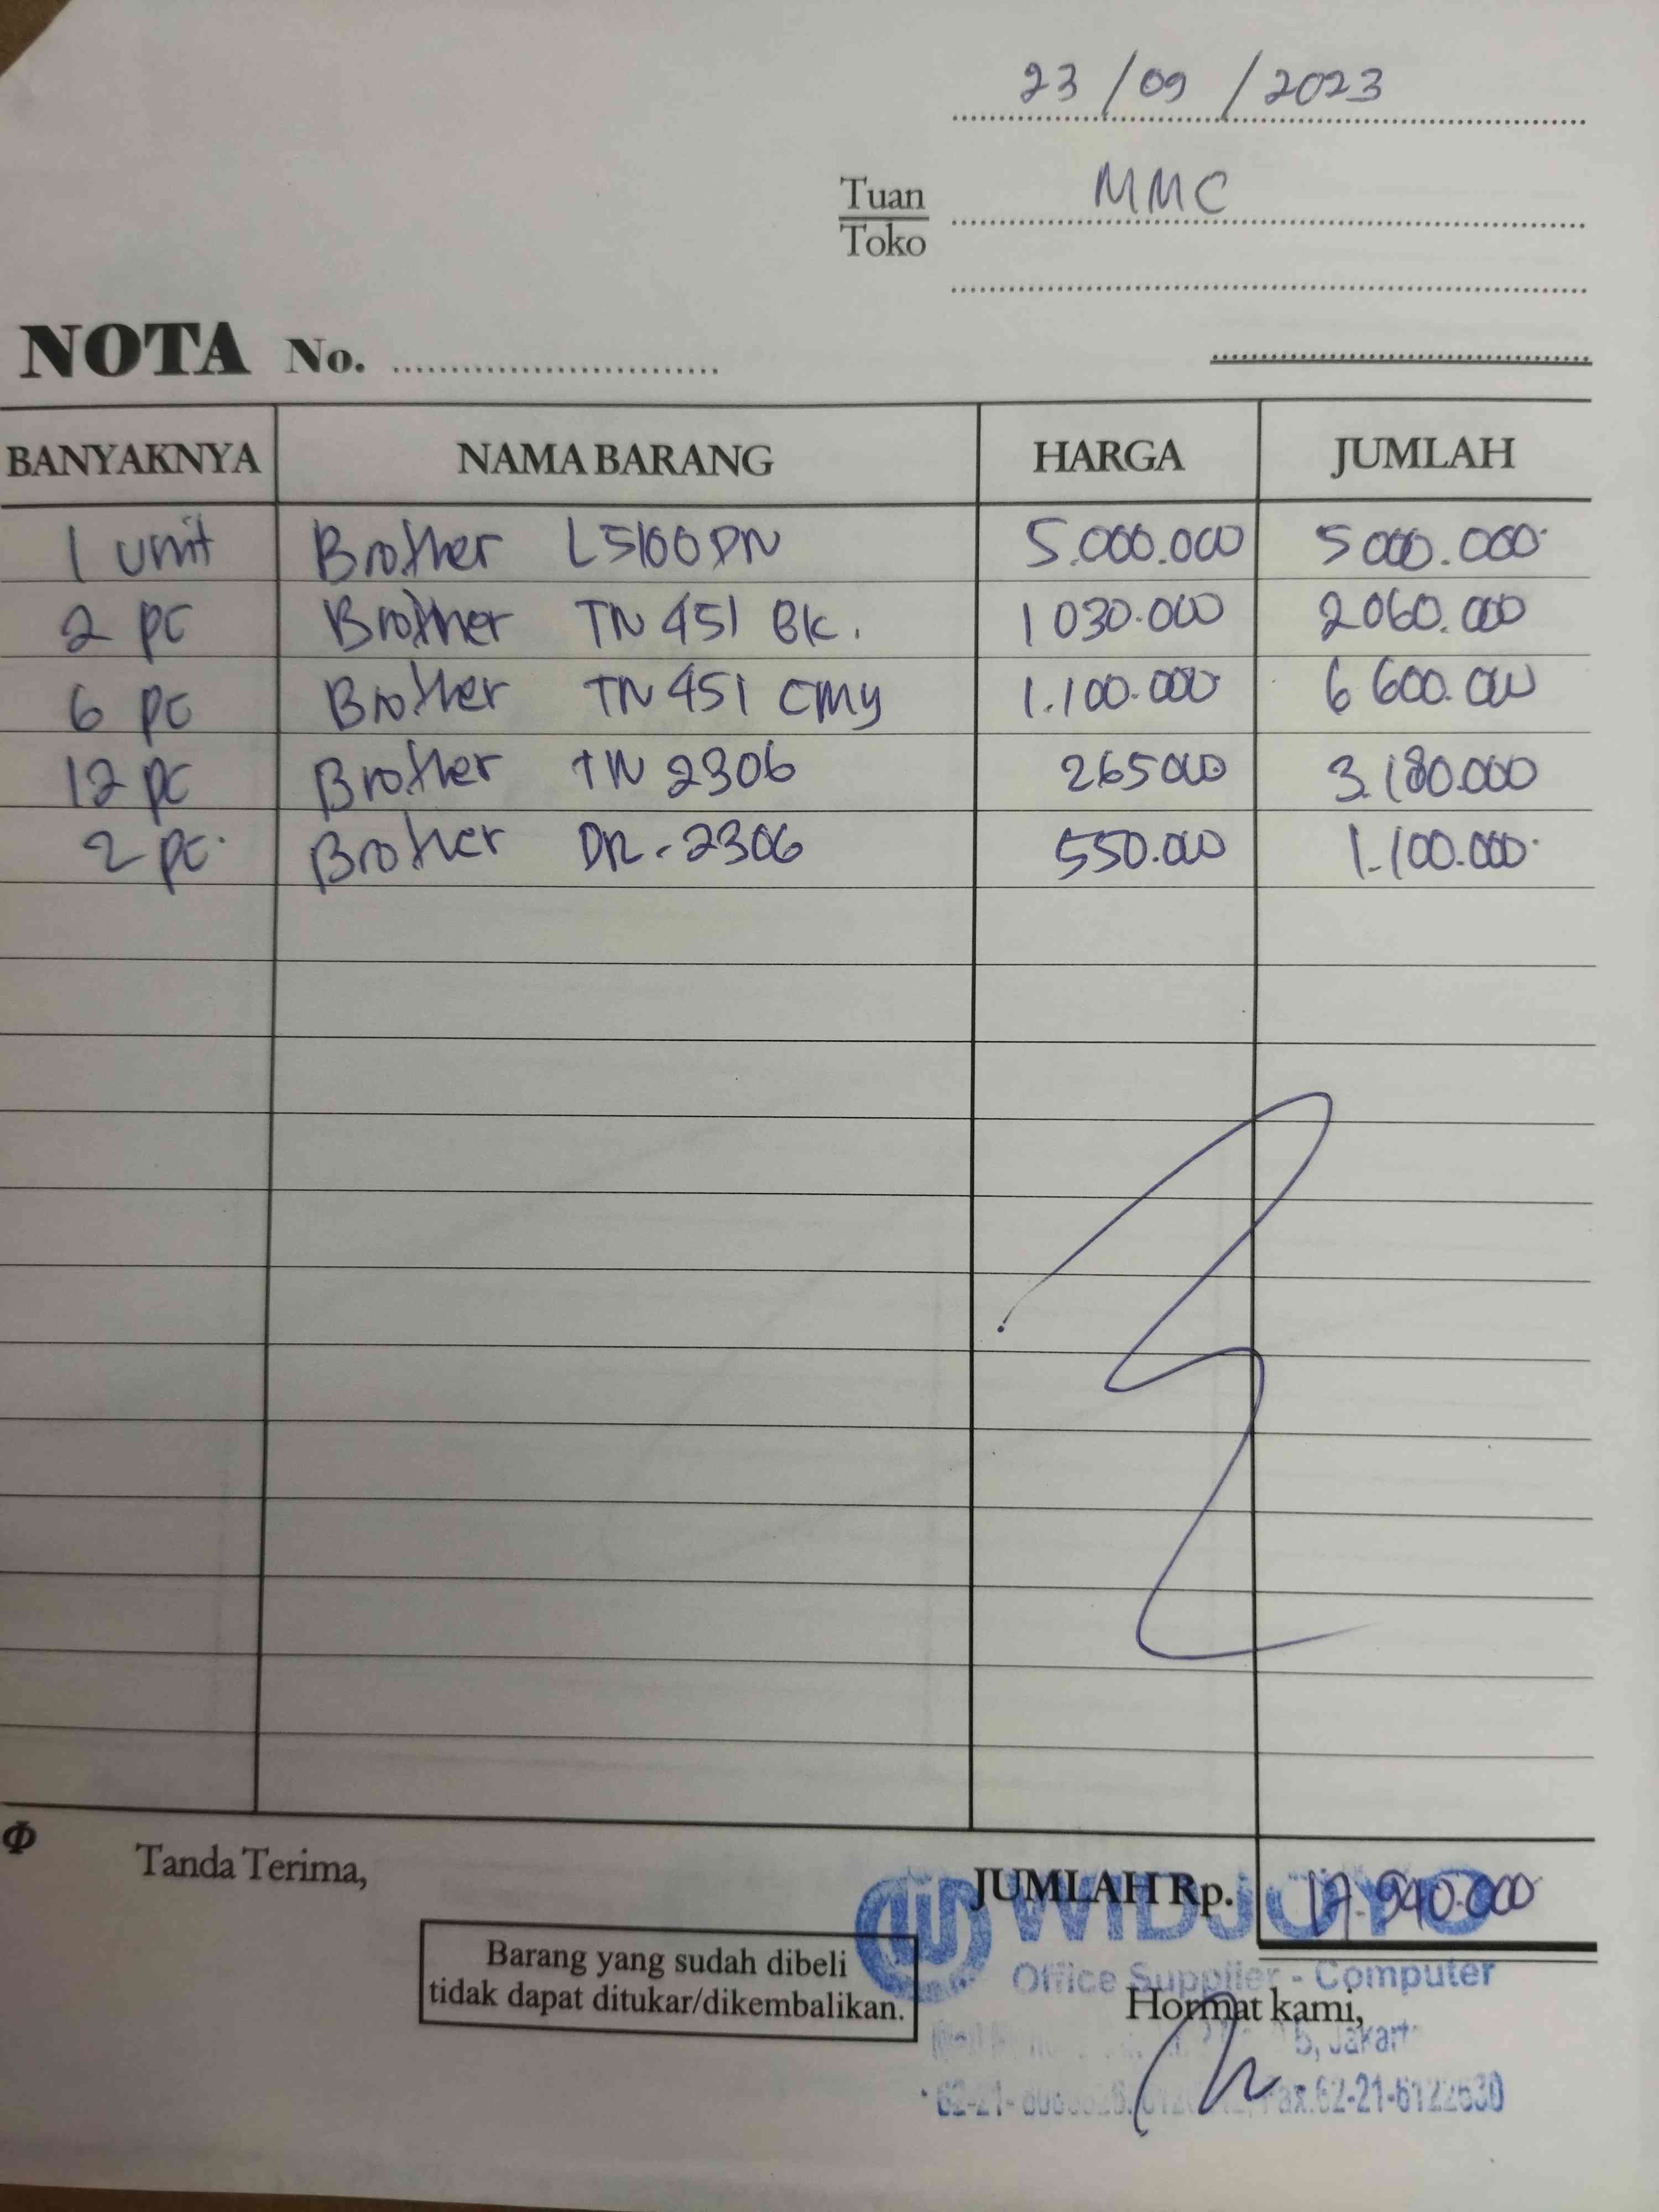 23/09/2023
Tuan
Toko
MMC
NOTA No.
BANYAKNYA NAMA BARANG HARGA JUMLAH
1 unit Brother L5100DN 5.000.000 5000.000
2 pc Brother TN 451 Bk. 1 030.000 2060.000
6 pc Brother TN 451 CMY 1.100.000 6 600.000
12 pc Brother TN 2306 265000 3.180.000
2 pc. Brother DR-2306 550.000 1.100.000
Tanda Terima,
JUMLAH Rp. 17.940.000
WIDJOYO
Office Supplier - Computer
Barang yang sudah dibeli
tidak dapat ditukar/dikembalikan.
Hormat kami,
5, Jakart
62-21- Fax.62-21-6122630